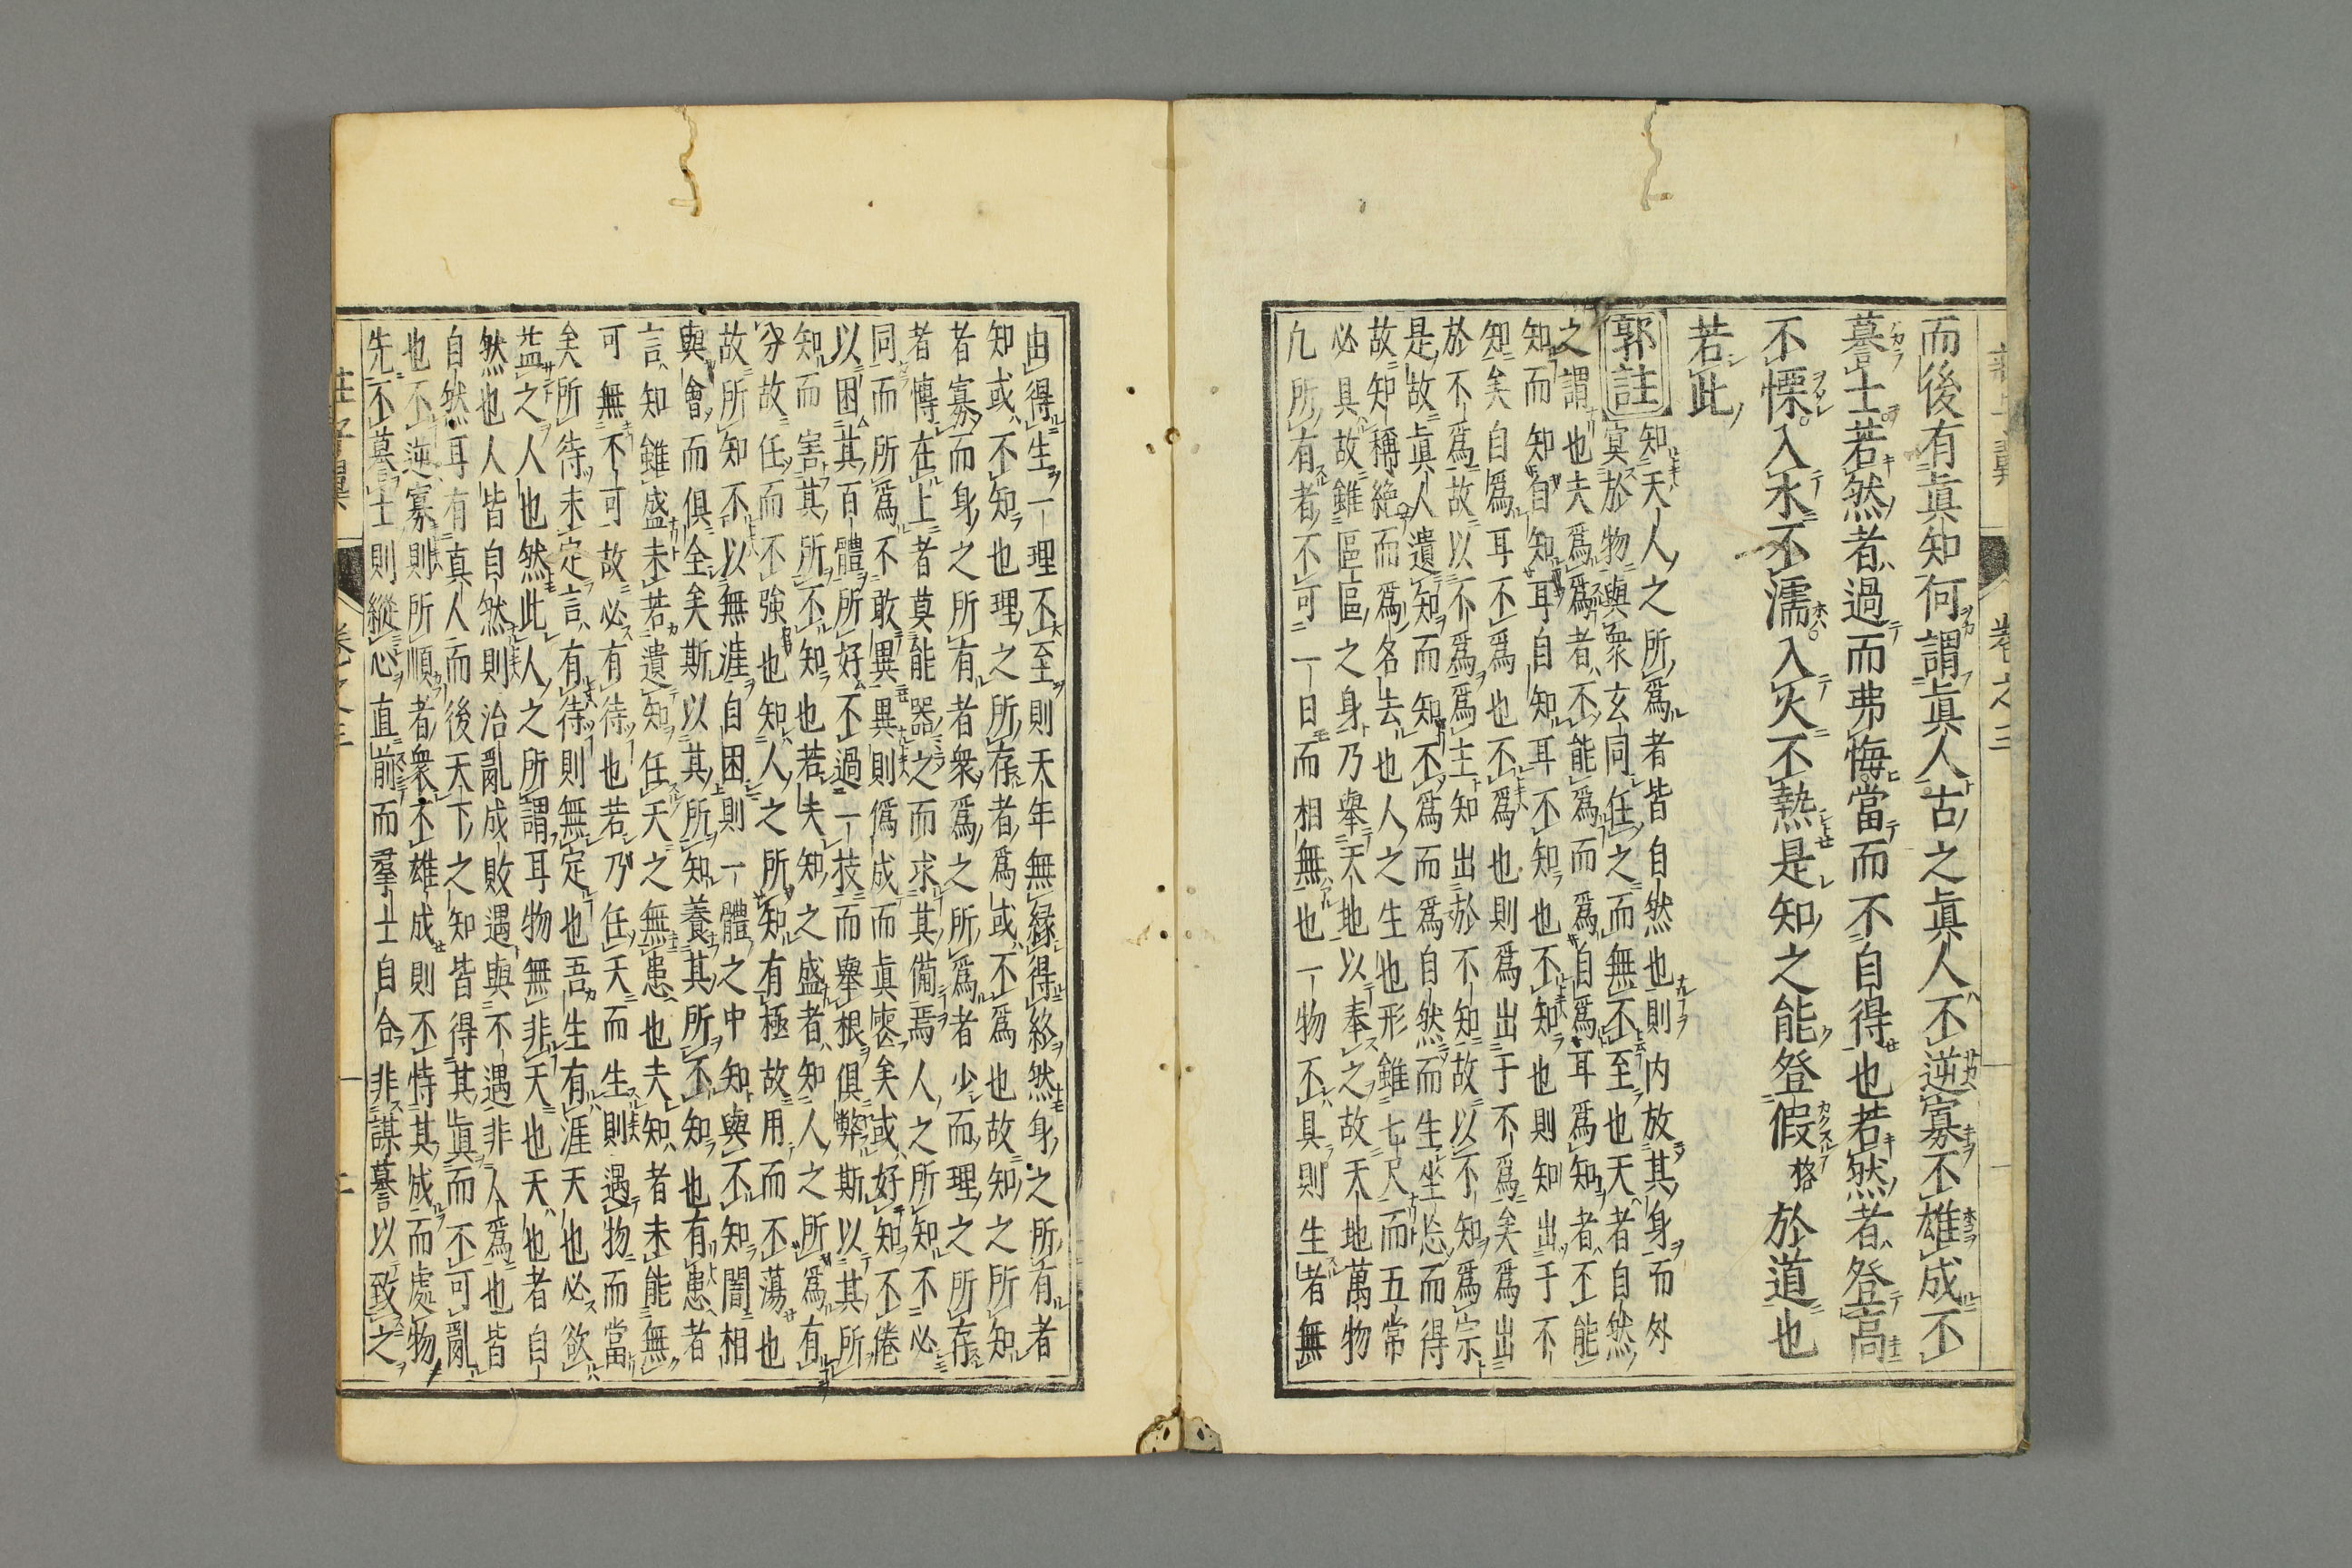 而後有眞知何謂眞人古之眞人不逆寡不雄成不
謩士若然者過而弗悔當而不自得也若然者登高
不慄入水不濡入火不熱是知之能登假格於道也
若此
郭註
知天人之所爲者皆自然也則內放其身而外
冥於物與衆玄同任之而無不至也天者自然
之謂也夫爲爲者不能爲而爲自爲耳爲知者不能
知而知自知耳自知耳不知也不知也則知出于不
知矣自爲耳不爲也不爲也則爲出于不爲矣爲出
於不爲故以不爲爲主知出於不知故以不知爲宗
是故眞人遺知而知不爲而爲自然而生坐忘而得
故知稱絶而爲名去也人之生也形雖七尺而五常
必具故雖區區之身乃舉天地以奉之故天地萬物
凡所有者不可一日而相無也一物不具則生者無
由得生一理不至則天年無縁得終然身之所有者
知或不知也理之所存者爲或不爲也故知之所知
者寡而身之所有者衆爲之所爲者少而理之所存
者博在上者莫能器之而求其備焉人之所知不必
同而所爲不敢異異則僞成而眞喪矣或好知不倦
以困其百體所好不過一技而舉根俱弊斯以其所
知而害其所不知也若夫知之盛者知人之所爲有
分故任而不強也知人之所知有極故用而不蕩也
故所知不以無涯自困則一體之中知與不知闇相
與會而俱全矣斯以其所知養其所不知也有患者
言知雖盛未若遺知任天之無患也夫知者未能無
可無不可故必有待也若乃任天而生則遇物而當
矣所待未定言有待則無定也吾生有涯天也必欲
益之人也然此人之所謂耳物無非天也天也者自
然也人皆自然則治亂成敗遇與不遇非人爲也皆
自然耳有真人而後天下之知皆得其眞而不可亂
也不逆寡則所順者衆不雄成則不恃其成而處物
先不謩士則縱心直前而羣士自合非謀謩以致之
卷之三
莊子翼